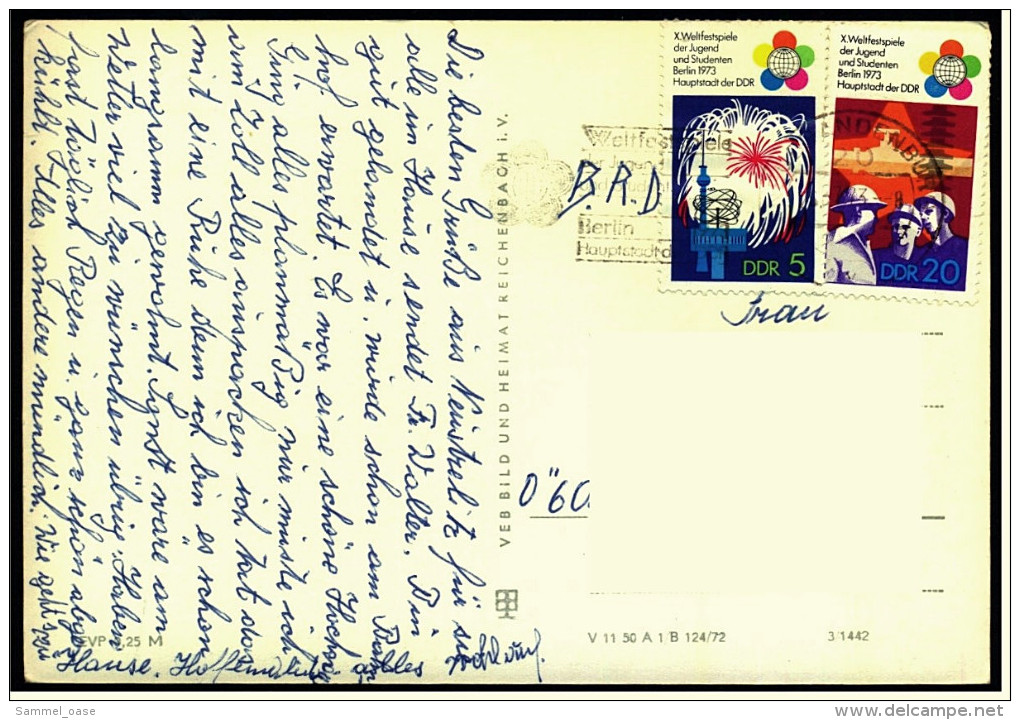 Die besten Grüße aus Neustrelitz für sie
alle im Hause sendet Fr. Walter. Bin
gut gelandet u. wurde schon am Bahn
hof erwartet. Es war eine schöne Hochzeit
Ging alles planmäßig nur müste ich
um Zoll alles auspacken ich hat den
mit eine Ruhe denn ich bin es schon
langsamm gewohnt. Sonst wäre am
Wetter viel zu wünschen übrig. Haben
fast täglich Regen u. ganz schön abge
kühlt. Alles andere mündlich. Wie geht's zu
Hause. Hoffendlich alles wohlauf.
VEB BILD UND HEIMAT REICHENBACH i. V.
EVP 0,25 M
V 11 50 A 1 B 124/72
3/1442
X. Weltfestspiele
der Jugend
und Studenten
Berlin 1973
Hauptstadt der DDR
DDR 5
X. Weltfestspiele
der Jugend
und Studenten
Berlin 1973
Hauptstadt der DDR
DDR 20
Weltfestspiele
der Jugend
Berlin
Hauptstadt d
B.R.D
Frau
Sammel_oase
delcampe.net